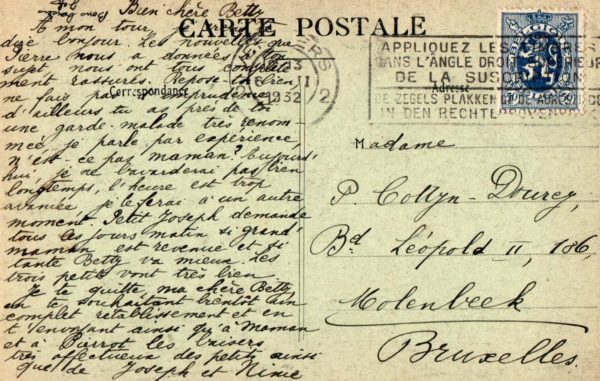 Bien chère Betty
CARTE POSTALE
A mon tour
dire bonjour. Les nouvelles que
Pierre nous a données à ton
sujet nous ont tous complète
ment rassurés. Repose-toi bien
ne fais pas d'imprudence
d'ailleurs tu as près de toi
une garde-malade très renom-
mée je parle par expérience
n'est-ce pas maman? Aujourd'
hui, je ne bavarderai pas bien
longtemps, l'heure est trop
avancée je le ferai à un autre
moment. Petit Joseph demande
tous les jours matin si grand'
maman est revenue et si
tante Betty va mieux. Les
trois petits vont très bien.
Je te quitte, ma chère Betty
en te souhaitant bientôt un
complet rétablissement et en
t'envoyant ainsi qu'à Maman
et à Pierrot les baisers
très affectueux des petits ainsi
que de Joseph et Ninie
Correspondance
Adresse
1932
2
APPLIQUEZ LES TIMBRES
DANS L'ANGLE DROIT SUPERIEUR
DE LA SUSCRIPTION
DE ZEGELS PLAKKEN
IN DEN RECHTER BOVENHOEK
Madame
P. Collyn-Dourcy,
Bd Léopold II, 186
Molenbeek
Bruxelles.